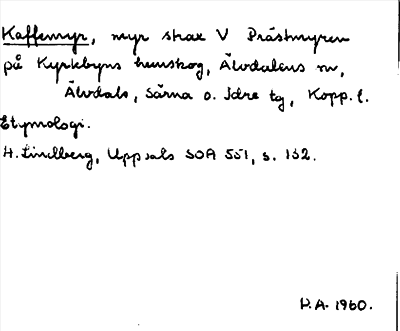 Kaffemyr, myr strax V Prästmyren
på Kyrkbyns hemskog, Älvdalens sn,
Älvdals, Särna o. Idre tg, Kopp. l.
Etymologi.
H. Lindberg, Uppsats SOA 551, s. 132.
H.A. 1960.